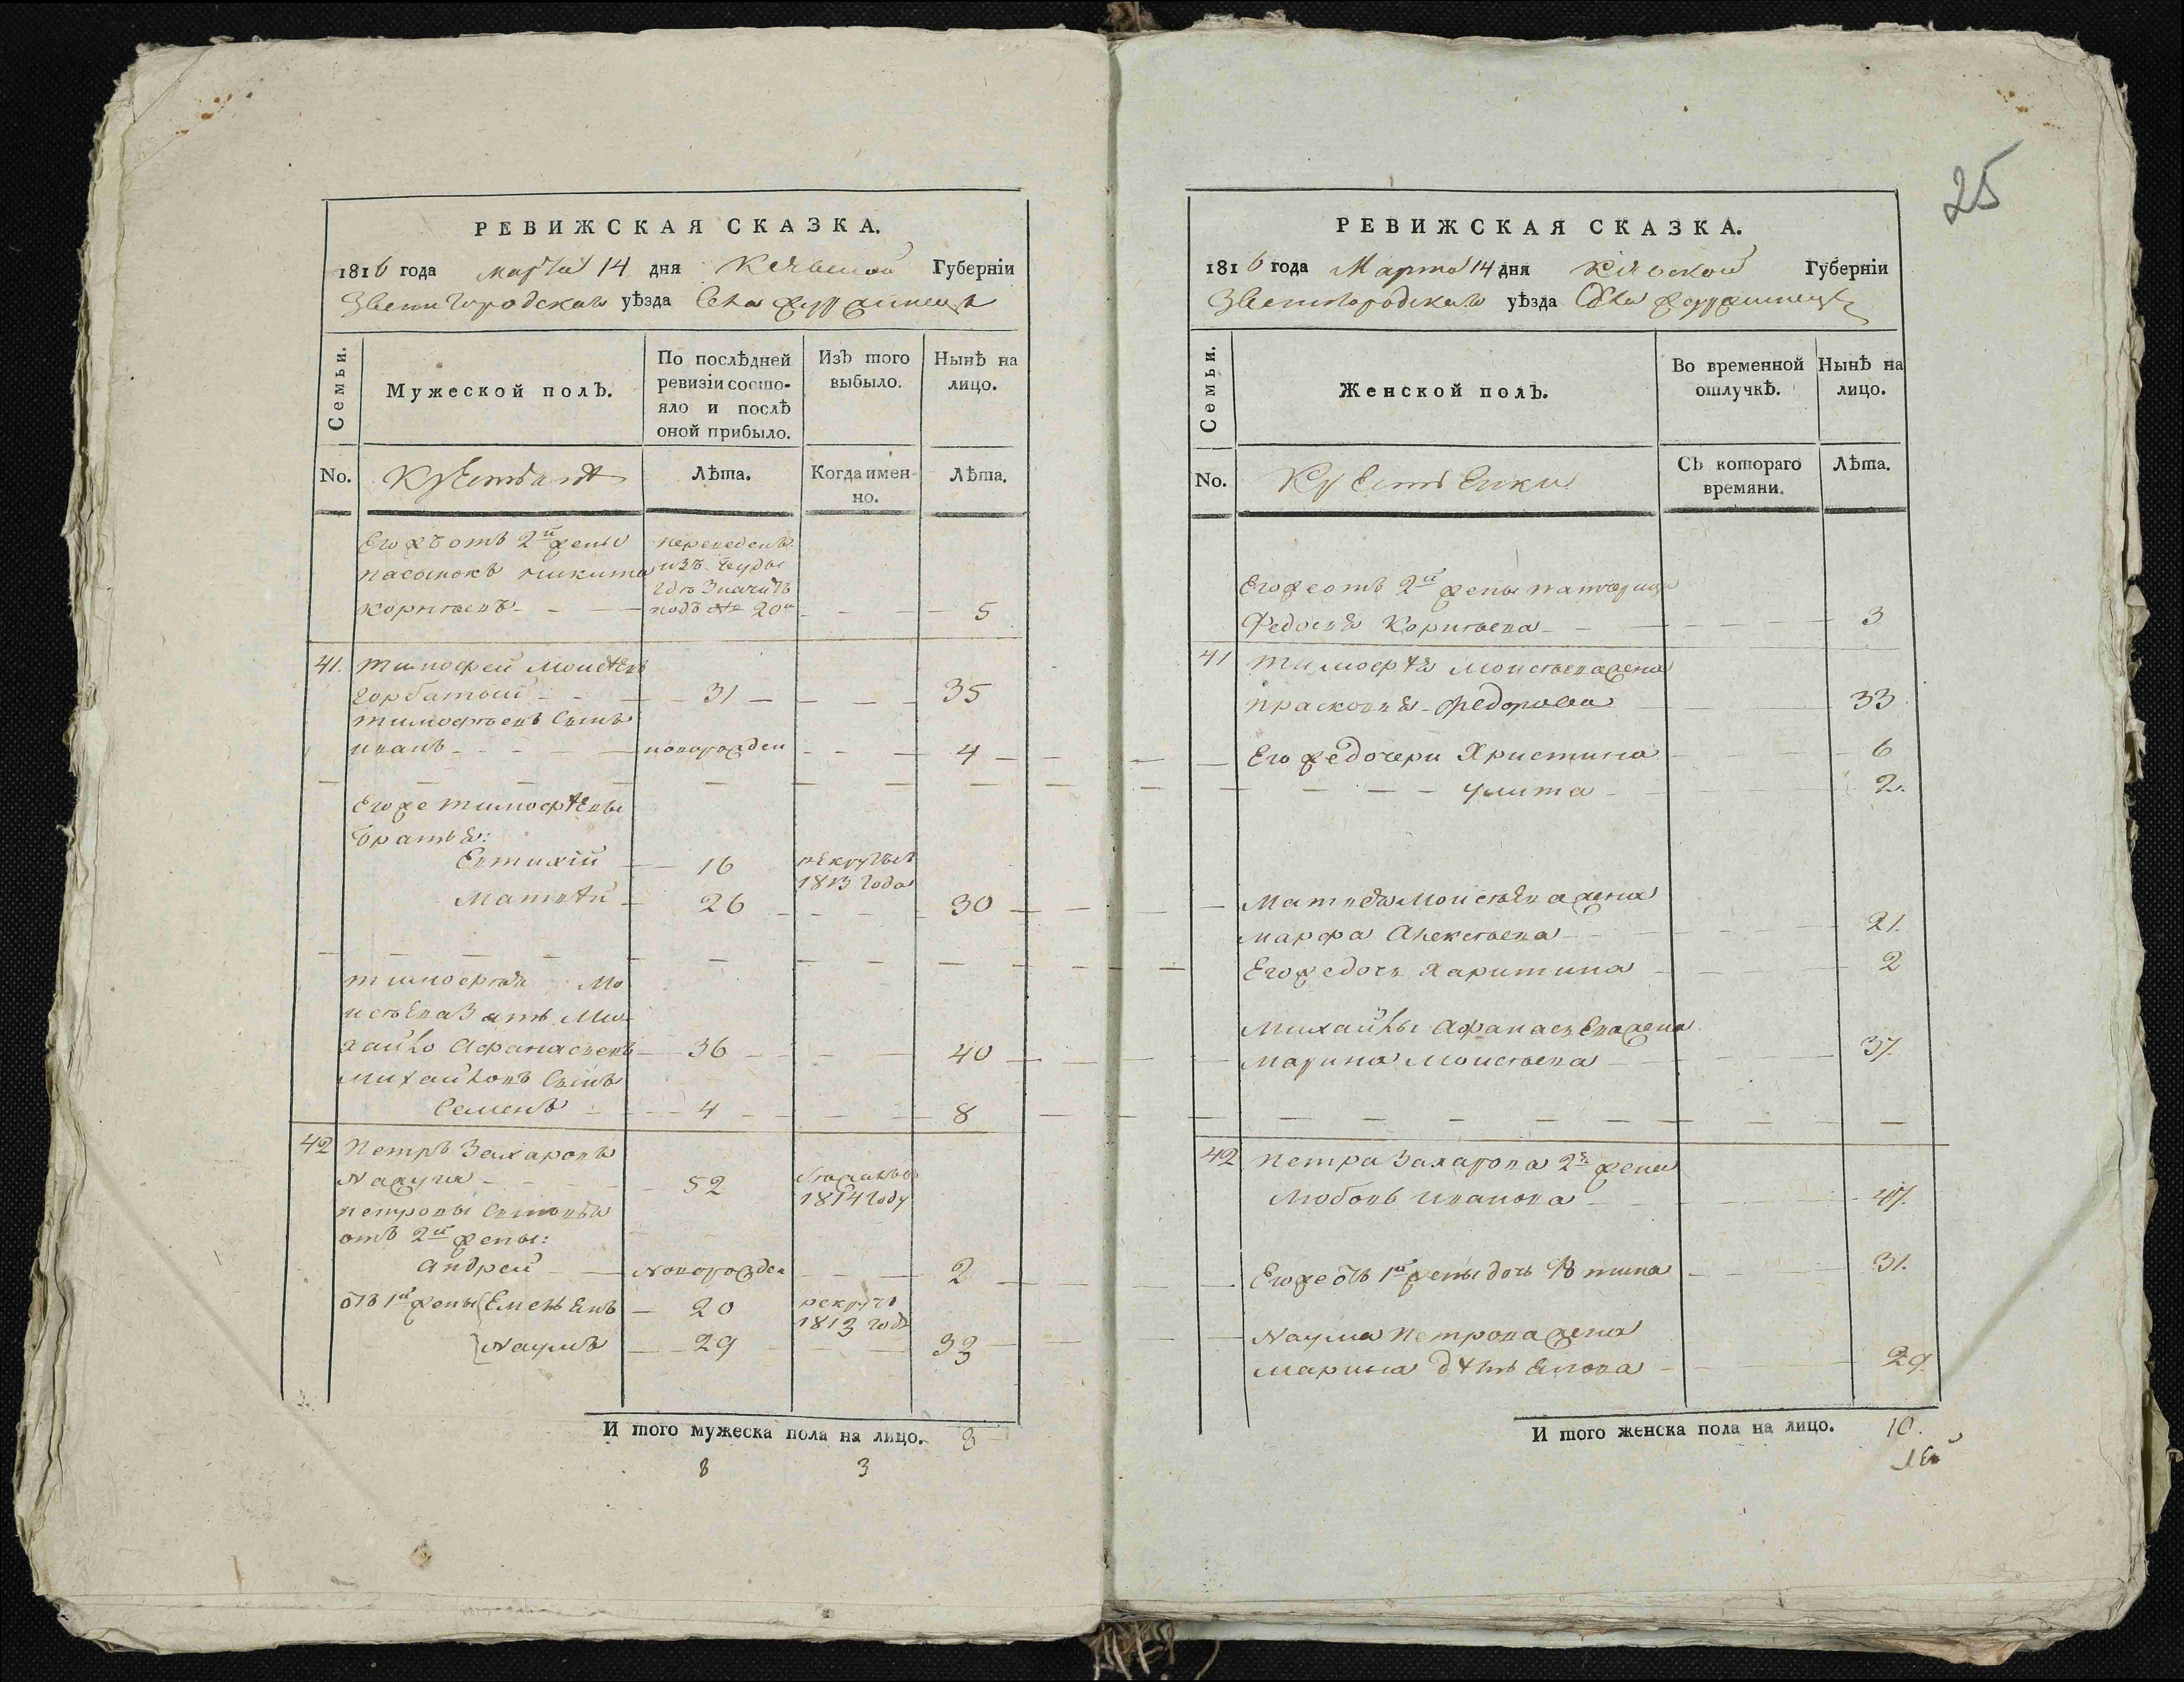 РЕВИЖСКАЯ СКАЗКА.
1816 года марта 14 дня Киевской Губерніи
Звенигородскаго уѣзда Села
Семьи.
Мужеской полъ.
По послѣдней ревизіи состояло и послѣ оной прибыло.
Изъ того выбыло.
Нынѣ на лицо.
No.
Крестьяне
Лѣта.
Когда именно.
Лѣта.
Его жъ отъ 2й жены
пасынокъ никита
корнѣевъ
переведенъ
изъ Буды
гдѣ значитъ
подъ № 20м
5
41. тимофей моисѣевъ
горбатый 31 35
тимофѣевъ сынъ
иванъ новорожден 4
Его же тимофѣевы
братья:
Евтихій 16 рекрутъ 1813 года
Матвѣй 26 30
тимофѣя мо
исѣева зять Ми
хайло Афанасіевъ 36 40
михайловъ сынъ
семенъ 4 8
42 Петръ Захаровъ
52 1814 году
петровы сыновья
отъ 2й жены:
андрей новорожден 2
отъ 1й жены Емельянъ 20 рекрутъ 1813 года
Наумъ 29 33
И того мужеска пола на лицо. 8
8 3
25
РЕВИЖСКАЯ СКАЗКА.
1816 года Марта 14 дня Киевской Губерніи
Звенигородскаго уѣзда Села
Семьи.
Женской полъ.
Во временной отлучкѣ.
Нынѣ на лицо.
No.
Съ котораго времяни.
Лѣта.
Его же отъ 2й жены патчерица
Федосья Корнѣева 3
41 тимофѣя моисѣева жена
прасковья федорова 33
Его же дочери Христина 6
улита 2.
Матвея Моисѣева жена
марфа Алексѣева 21.
Его же дочь харитина 2
Михайлы афанасьева жена
марина моисѣева 37.
42 петра захарова 2я жена
Любовь иванова 47.
Его же отъ 1й жены дочь 31.
Наума петрова жена
марина 29.
И того женска пола на лицо. 10.